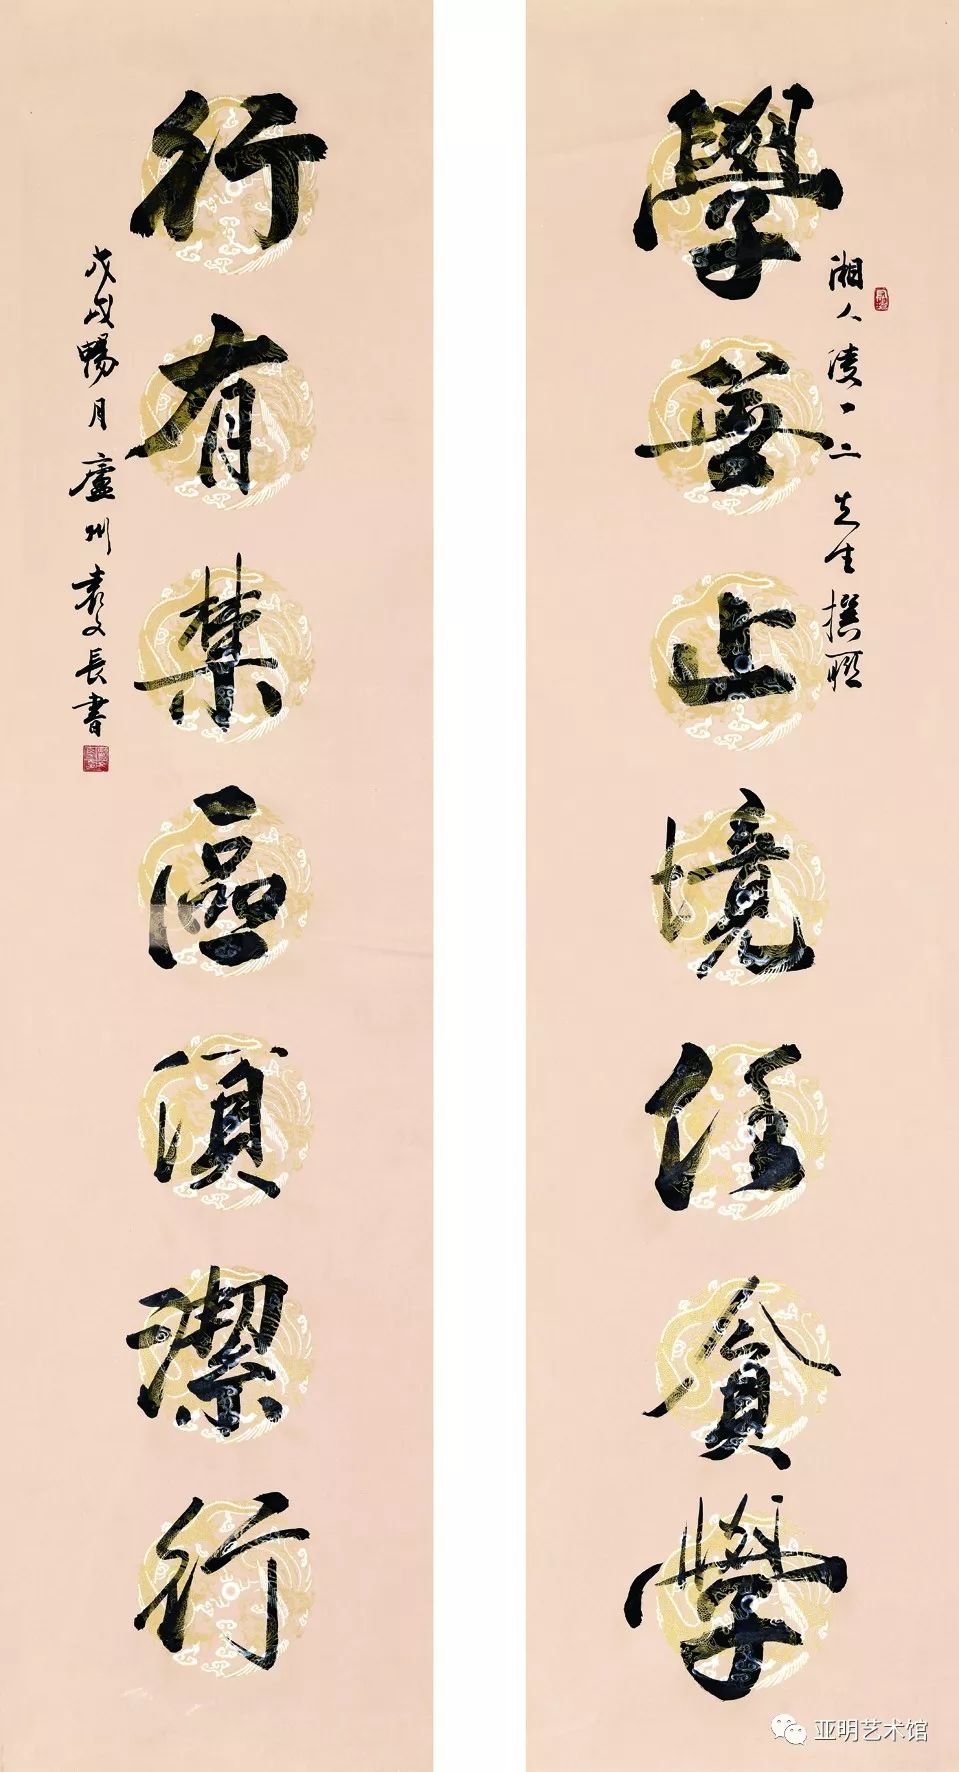 學無止境任貪學
湘人凌一二先生撰聯
行有禁區須潔行
戊戌暢月廬州袁文長書
亚明艺术馆